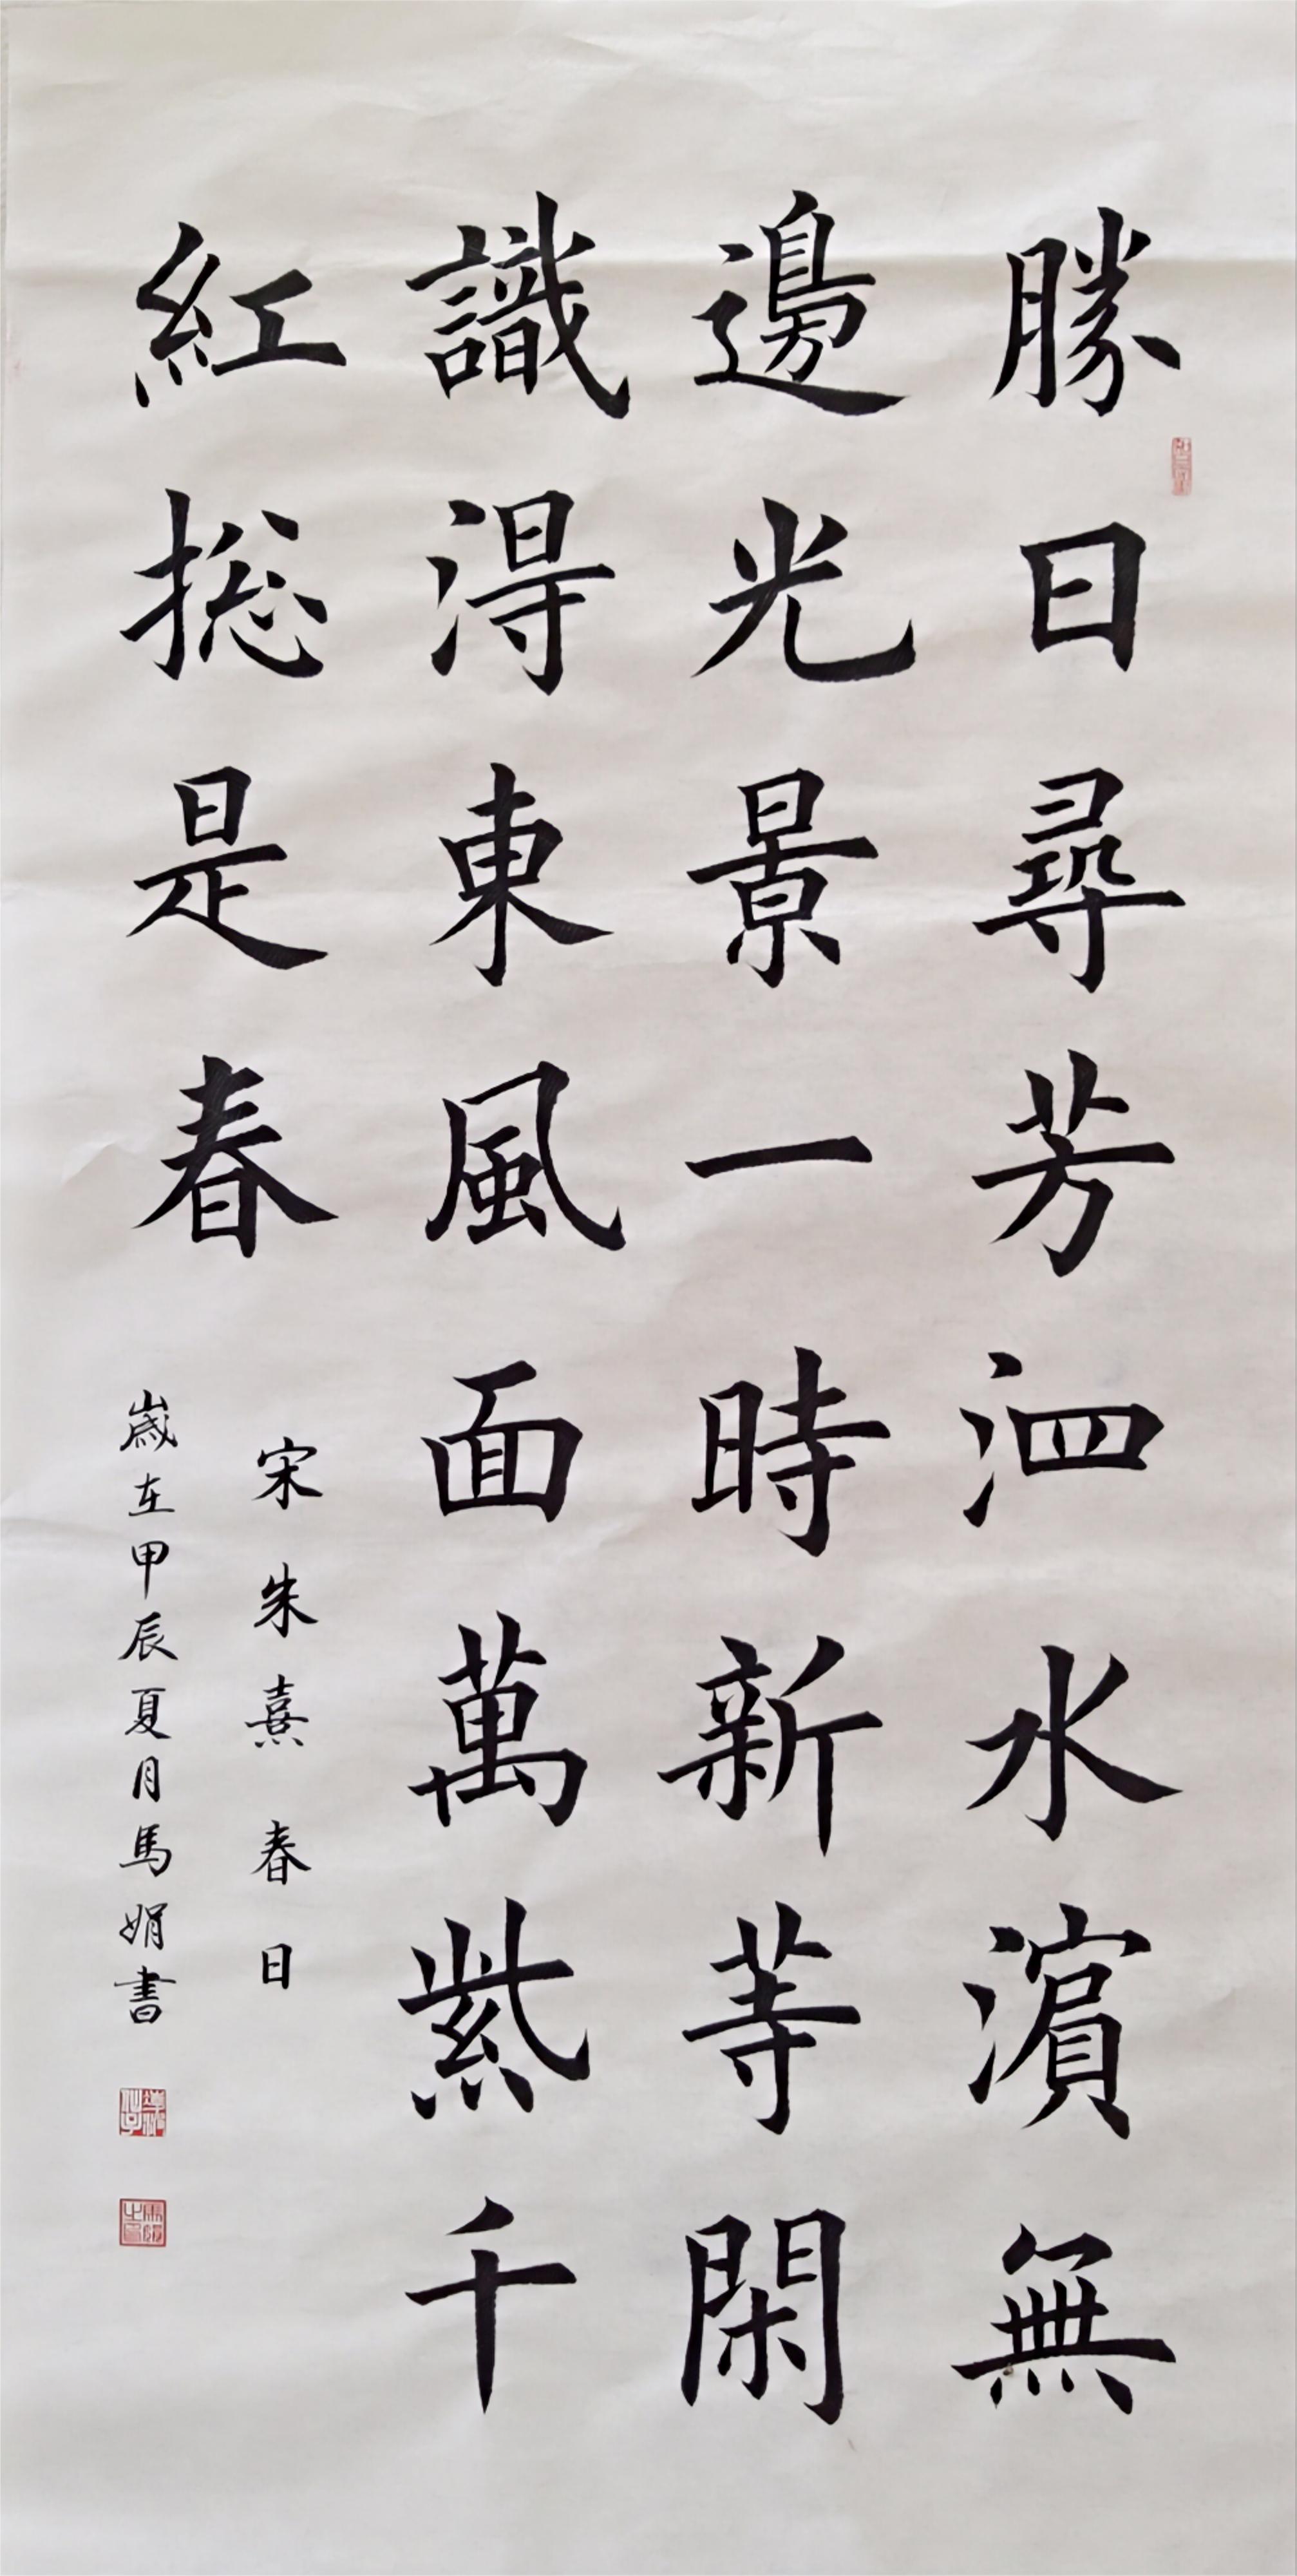 勝日尋芳泗水濵無
邊光景一時新等閑
識淂東風面萬紫千
紅捴是春
宋朱熹春日
歲在甲辰夏月馬娟書